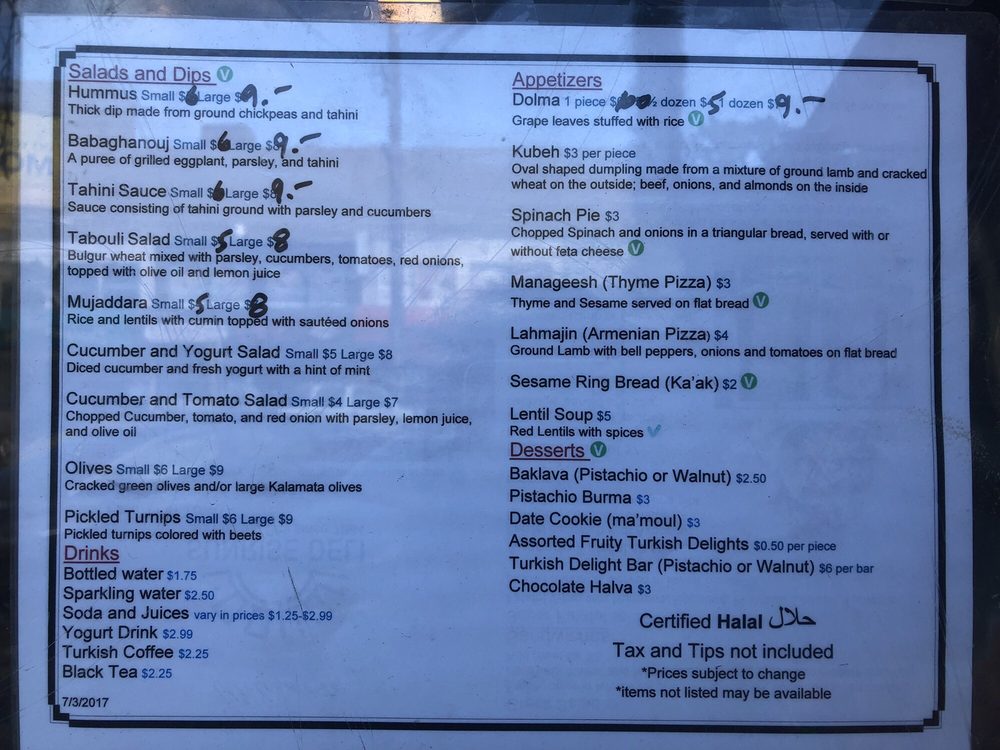 Salads and Dips V
Hummus Small $6 Large $9.-
Thick dip made from ground chickpeas and tahini
Babaghanouj Small $6 Large $9.-
A puree of grilled eggplant, parsley, and tahini
Tahini Sauce Small $6 Large $9.-
Sauce consisting of tahini ground with parsley and cucumbers
Tabouli Salad Small $5 Large $8
Bulgur wheat mixed with parsley, cucumbers, tomatoes, red onions,
topped with olive oil and lemon juice
Mujaddara Small $5 Large $8
Rice and lentils with cumin topped with sautéed onions
Cucumber and Yogurt Salad Small $5 Large $8
Diced cucumber and fresh yogurt with a hint of mint
Cucumber and Tomato Salad Small $4 Large $7
Chopped Cucumber, tomato, and red onion with parsley, lemon juice,
and olive oil
Olives Small $6 Large $9
Cracked green olives and/or large Kalamata olives
Pickled Turnips Small $6 Large $9
Pickled turnips colored with beets
Drinks
Bottled water $1.75
Sparkling water $2.50
Soda and Juices vary in prices $1.25-$2.99
Yogurt Drink $2.99
Turkish Coffee $2.25
Black Tea $2.25
7/3/2017
Appetizers
Dolma 1 piece ½ dozen $5 1 dozen $9.-
Grape leaves stuffed with rice V
Kubeh $3 per piece
Oval shaped dumpling made from a mixture of ground lamb and cracked
wheat on the outside; beef, onions, and almonds on the inside
Spinach Pie $3
Chopped Spinach and onions in a triangular bread, served with or
without feta cheese V
Manageesh (Thyme Pizza) $3
Thyme and Sesame served on flat bread V
Lahmajin (Armenian Pizza) $4
Ground Lamb with bell peppers, onions and tomatoes on flat bread
Sesame Ring Bread (Ka'ak) $2 V
Lentil Soup $5
Red Lentils with spices
Desserts V
Baklava (Pistachio or Walnut) $2.50
Pistachio Burma $3
Date Cookie (ma'moul) $3
Assorted Fruity Turkish Delights $0.50 per piece
Turkish Delight Bar (Pistachio or Walnut) $6 per bar
Chocolate Halva $3
Certified Halal حلال
Tax and Tips not included
*Prices subject to change
*items not listed may be available